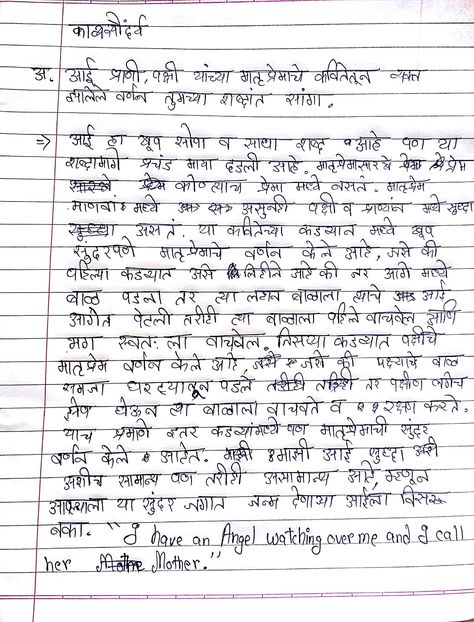 काव्यसौंदर्य
अ. आई प्राणी, पक्षी यांच्या मातृप्रेमाचे कवितेतून व्यक्त
झालेले वर्णन तुमच्या शब्दांत सांगा.
⇒ आई हा खूप सोपा व साधा शब्द आहे पण या
शब्दामागे प्रचंड माया दडली आहे. मातृप्रेमासारखे प्रेम
कोणत्याच प्रेमा मध्ये नसतं. मातृप्रेम
मानवां मध्ये असुनही पक्षी व प्राण्यांन मध्ये सुध्दा
असतं. या कवितेच्या कडव्यात मध्ये खूप
सुंदरपणे मातृप्रेमाचे वर्णन केले आहे, जसे की
पहिल्या कडव्यात असे लिहीले आहे की जर आगे मध्ये
बाळ पडला तर त्या लहान बाळाला त्याचे आई
आगेत पेटली तरीही त्या बाळाला पहिले वाचवेल आणि
मग स्वतः ला वाचवेल. तिसऱ्या कडव्यात पक्षीचे
मातृप्रेम वर्णन केले आहे, जसे की पक्ष्याचे बाळ
समजा घरट्यातून पडले तर पक्षीण लगेच
झेप घेऊन त्या बाळाला वाचवते व रक्षण करते.
याच प्रमाणे इतर कडव्यांमध्ये पण मातृप्रेमाची सुंदर
वर्णन केले आहेत. माझी आई सुध्दा
अशीच सामान्य पण तरीही असामान्य आहे, म्हणून
आपल्याला या सुंदर जगात जन्म देणाऱ्या आईला विसरू
नका. "I have an Angel watching over me and I call
her Mother."